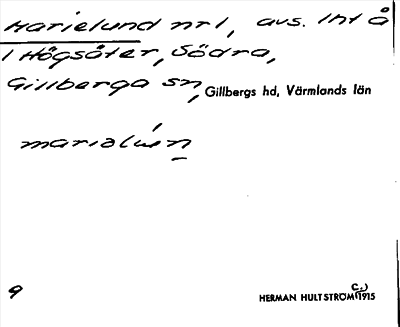 Marielund nr 1, avs. Int å
1 Högsäter, Södra,
Gillberga sn, Gillbergs hd, Värmlands län
marialún
9
HERMAN HULTSTRÖM (C.) 1915